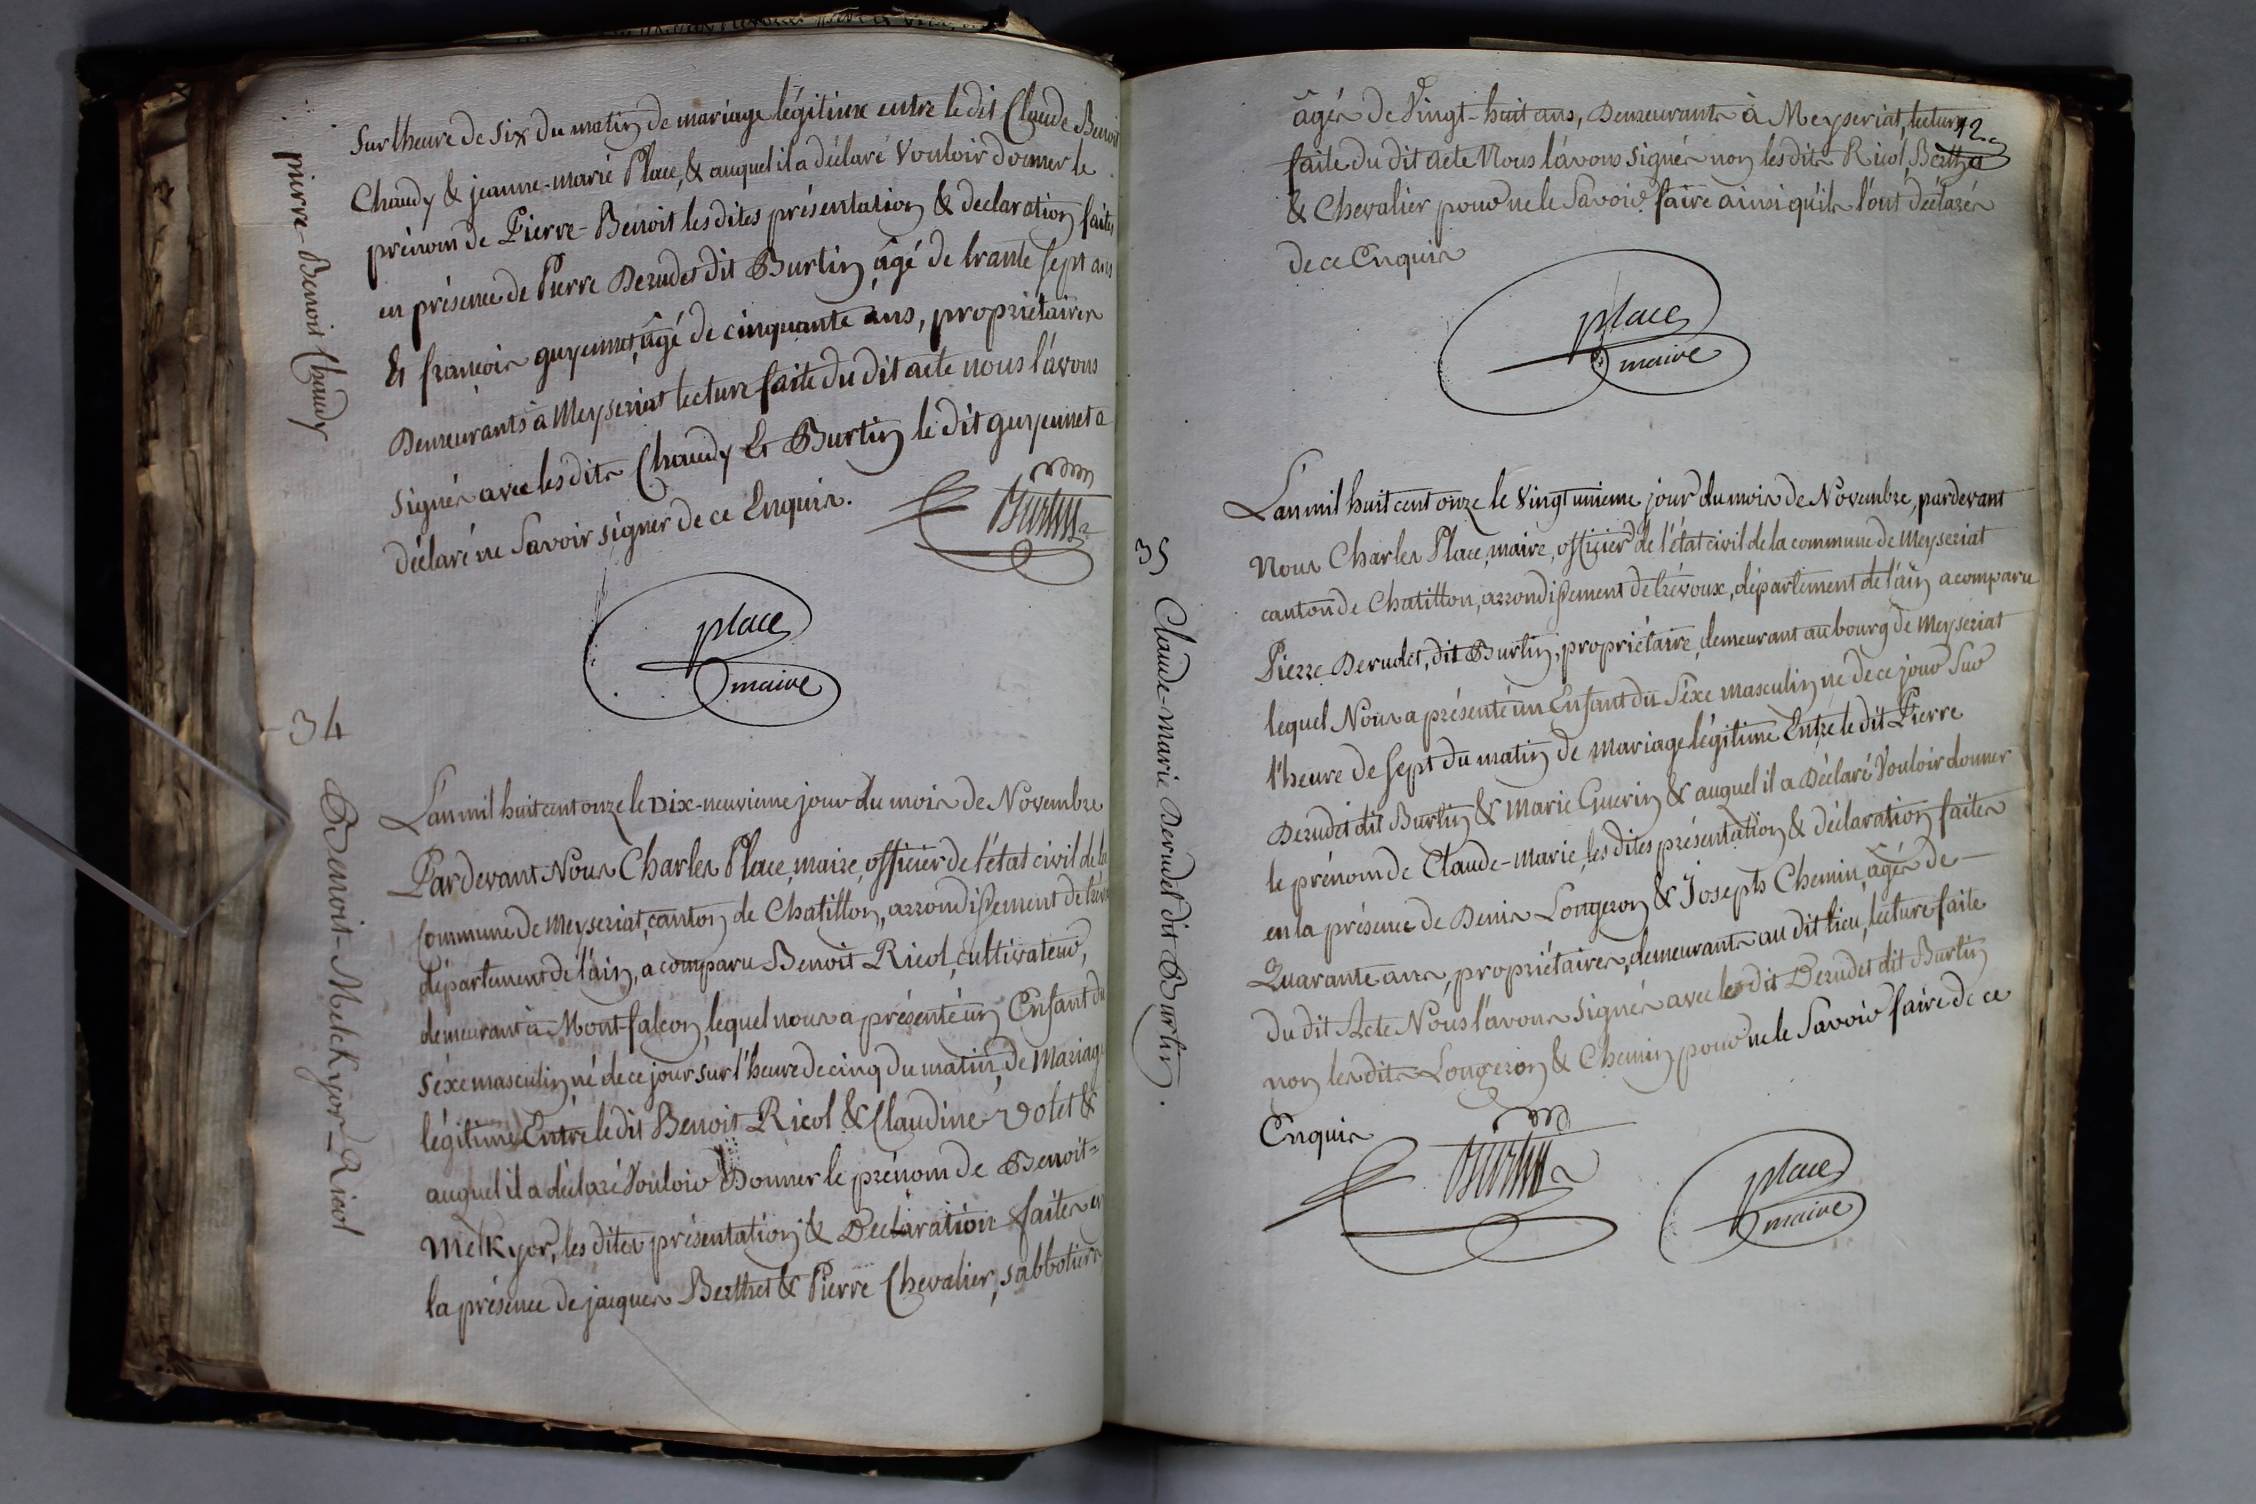 Sur l'heure de six du matin de mariage légitime entre le dit Claude Benoit
Chaudy & jeanne-marie Place, & auquel il a déclaré Vouloir donner le
prénom de Pierre-Benoit les dites présentation & declaration faites
en présence de Pierre Derudet dit Burtin âgé de trante sept ans
Et françois guyennet, âgé de cinquante ans, propriétaires
Demeurants à Meyseriat lecture faite du dit acte nous l'avons
signés avec les dits Chaudy Et Burtin le dit guyennet a
déclaré ne Savoir signer de ce Enquis.
Burtin
place
maire
pierre-Benoit Chaudy
34
Benoit-Melckyor-Ricol
L'an mil huit cent onze le Dix-neuvieme jour du mois de Novembre
Pardevant Nous Charles Place, maire, officier de l'état civil de la
commune de Meyseriat, canton de Chatillon, arrondissement de
département de l'ain, a comparu Benoit Ricol, cultivateur,
demeurant à Mont-falcon, lequel nous a présenté un Enfant du
séxe masculin né de ce jour sur l'heure de cinq du matin, de Mariage
légitime Entre le dit Benoit Ricol & Claudine Volet &
auquel il a déclaré Vouloir Donner le prénom de Benoit-
Melkyor, les dites présentation & Declaration faites en
la présence de jacques Berthet & Pierre Chevalier, sabbotiers
12
âgés de Vingt-huit ans, Demeurants à Meyseriat, lecture
faite du dit acte Nous l'avons signés non les dits Ricol,
& Chevalier pour ne le Savoir faire ainsi qu'ils l'ont déclarés
de ce Enquis
place
maire
35
Claude-marie Derudet dit Burtin.
L'an mil huit cent onze le Vingt unieme jour du mois de Novembre, pardevant
Nous Charles Place, maire, officier de l'état civil de la commune de Meyseriat
canton de Chatillon, arrondissement de trévoux, département de l'ain a comparu
Pierre Derudet, dit Burtin, propriétaire, demeurant au bourg de Meyseriat
lequel Nous a présenté un Enfant du Séxe masculin né de ce jour Sur
l'heure de sept du matin de mariage légitime Entre le dit Pierre
Derudet dit Burtin & Marie Guerin & auquel il a Déclaré Vouloir donner
le prénom de Claude-Marie, les dites présentation & déclaration faites
en la présence de Denis Longeron & Joseph Chemin, âgés de
Quarante ans, propriétaires, demeurants au dit lieu, lecture faite
du dit Acte Nous l'avons signés avec le dit Derudet dit Burtin
non les dits Longeron & Chemin pour ne le Savoir faire de ce
Enquis
Burtin
place
maire